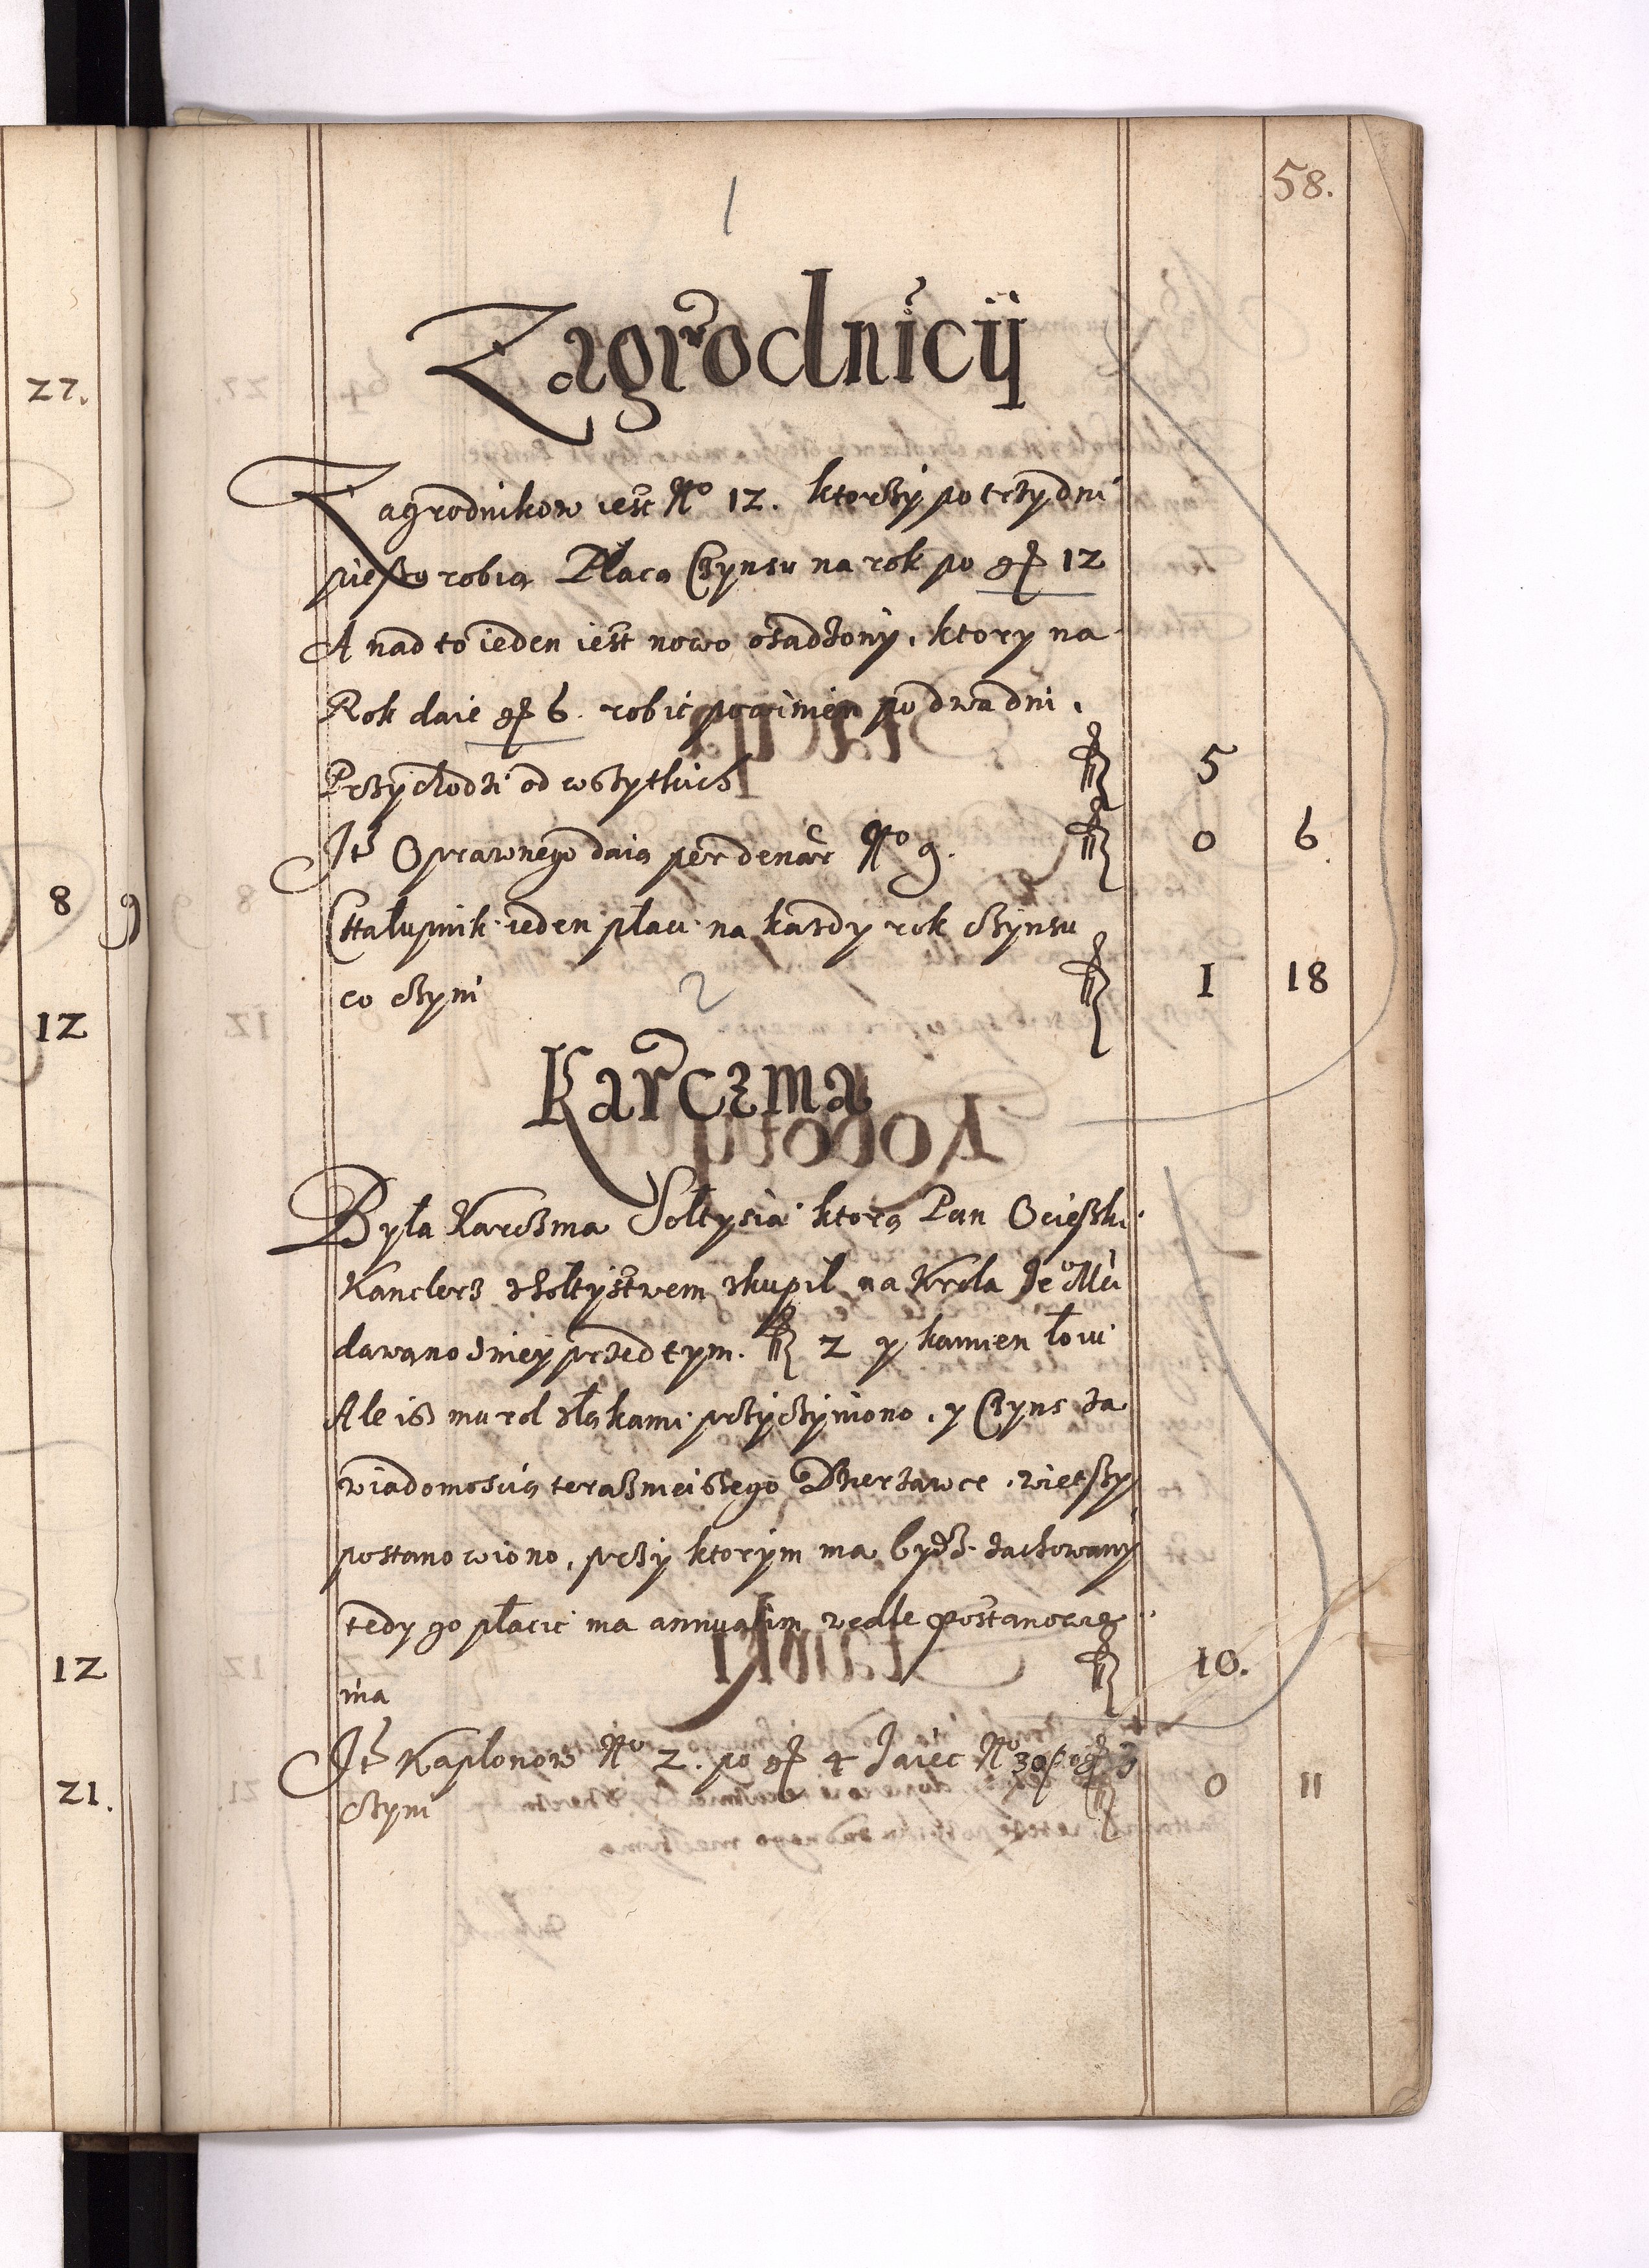 58.
1
Zagrodnicÿ
Zagrodnikow iest No 12. ktorzy po trzy dni
pieszo robią Płacą Czynsu na rok po gr 12
A nad to ieden iest nowo osadzony, ktory na
Rok daie gr 6. robic powinien po dwa dni,
Przychodzi od wszytkich fl 5
Itē Oprawnego daią per denar No 9. fl 0 6
Chałupnik ieden płaci na kazdy rok czynsu
co czyni fl 1 18
2
Karczma
Była Karczma Sołtysia ktorą Pan Ocieski
Kanclerz z Sołtystwem skupił na Krola Je Mci
dawano zniey przed tym. fl 2 y kamien łoiu
Ale isz mu rol z łąkami przyczyniono, y Czyns za
wiadomoscią teraznieiszego Dzierzawce, wietszy
postanowiono, przy ktorym ma bydz zachowany
tedy go płacic ma annuatim wedle postanowie
nia fl 10.
Itē Kapłonow No 2. po gr 4 Jaiec No 30 gr 3
czyni fl 0 11
27.
8 9
12
12
21.